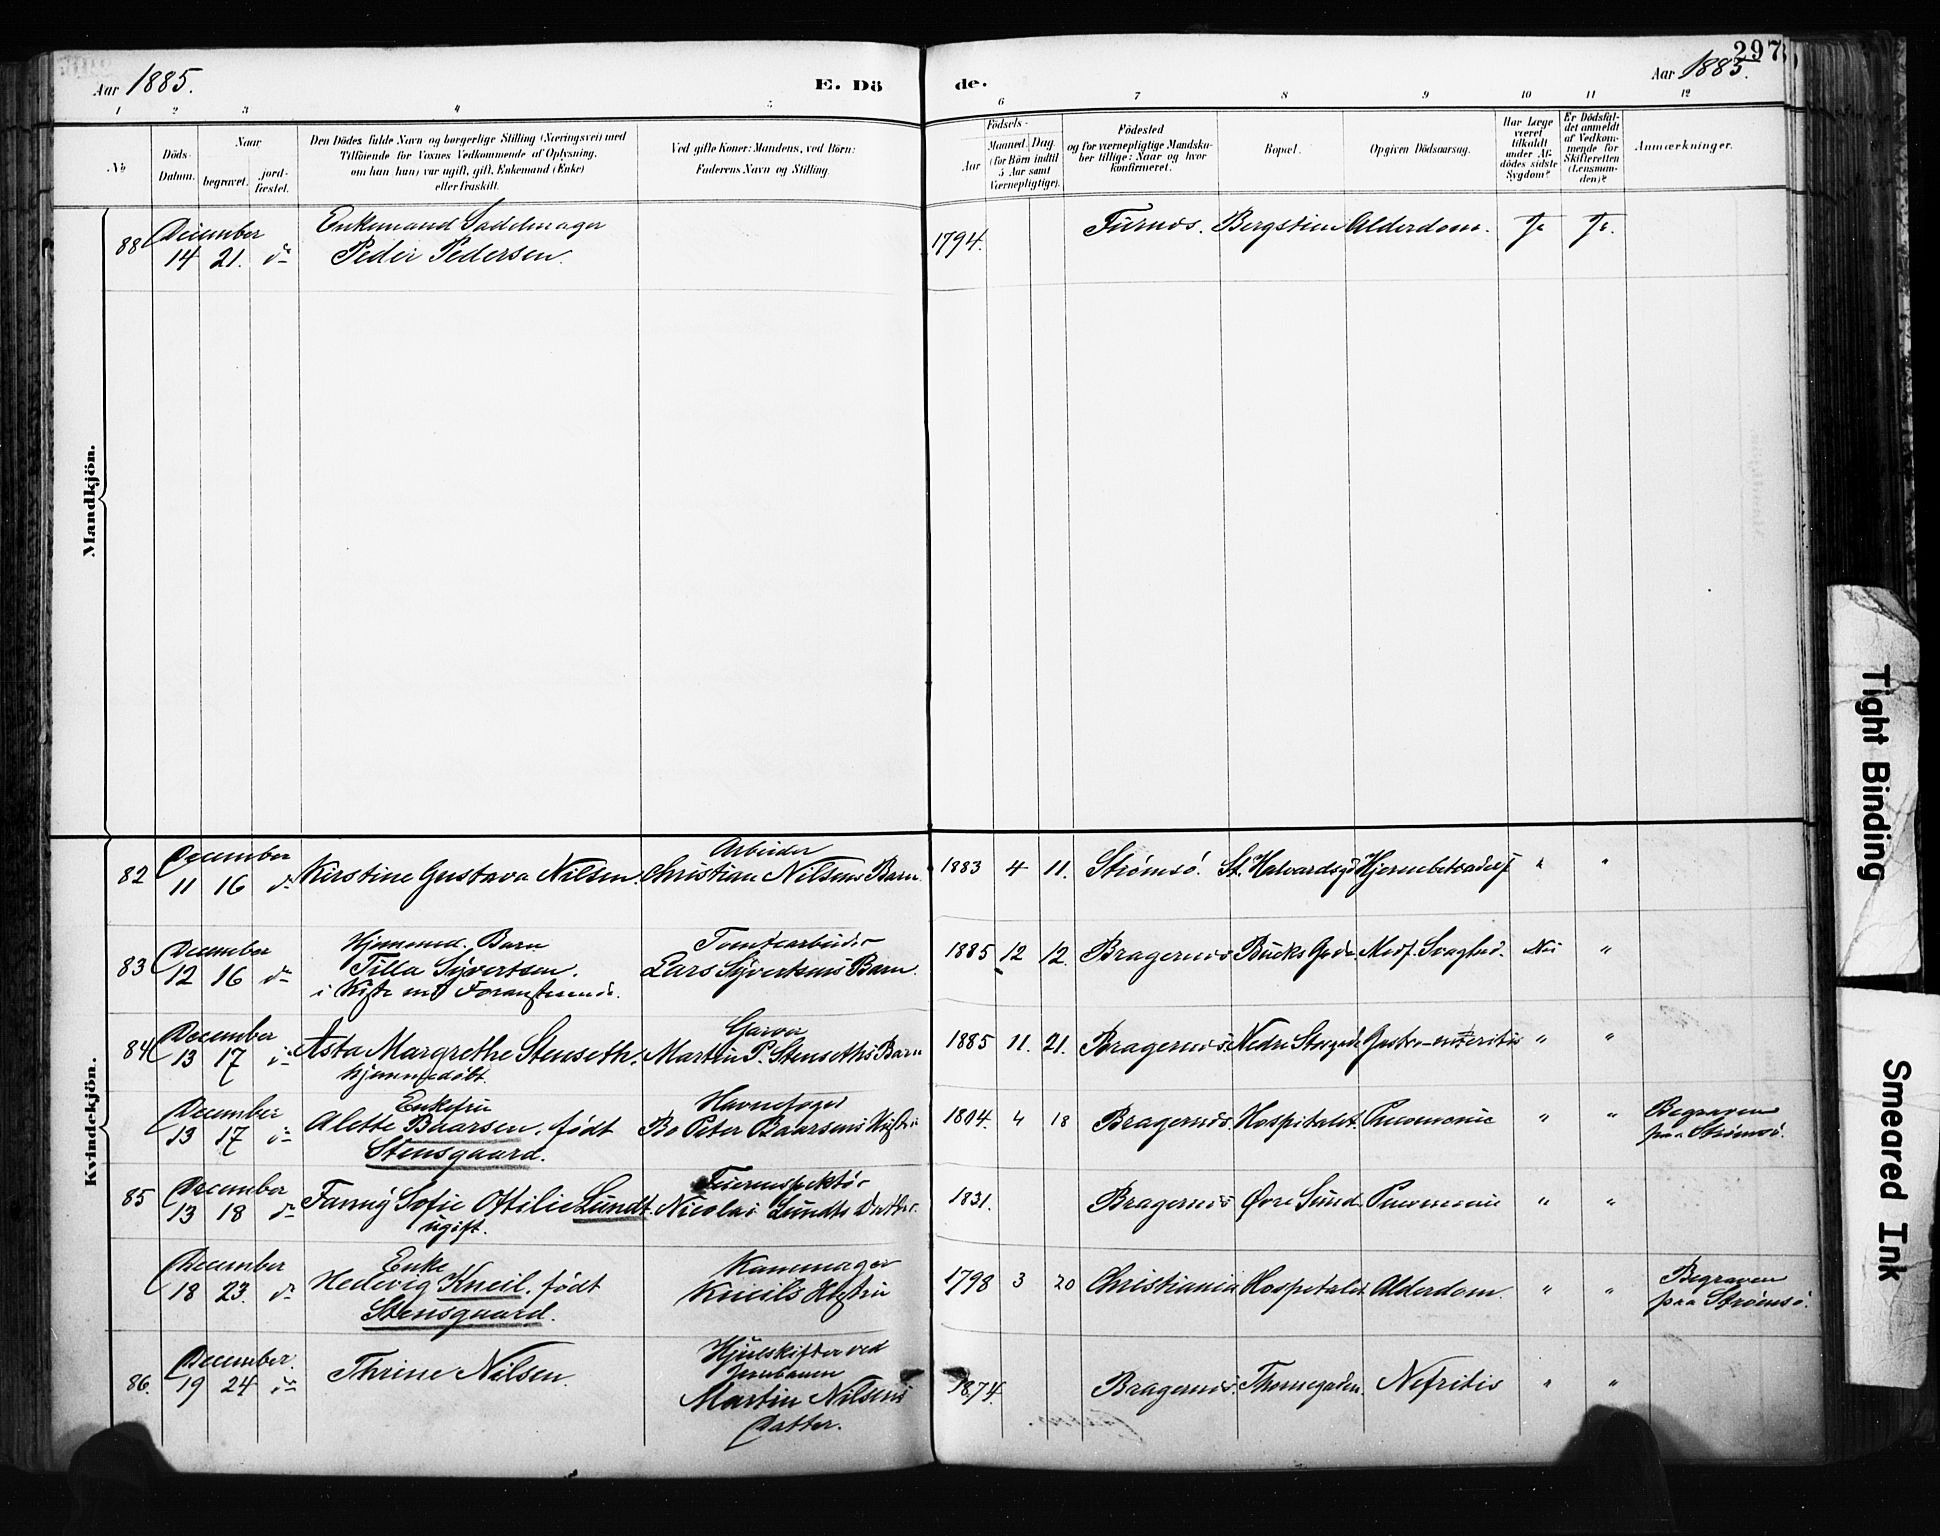 297
Aar 1885. E. Dö de. Aar 1885.
1 2 3 4 5 6 7 8 9 10 11 12
No
Döds-Datum.
Naar
begravet. jord-fæstet.
Den Dödes fulde Navn og borgerlige Stilling (Næringsvei) med
Tilföiende for Voxnes Vedkommende af Oplysning,
om han (hun) var ugift, gift, Enkemand (Enke)
eller fraskilt.
Ved gifte Koner: Mandens, ved Börn:
Faderens Navn og Stilling.
Födsels-
Aar Maaned. Dag
(for Börn indtil
5 Aar samt
Værnepligtige).
Födested
og for værnepligtige Mandsku-
ber tillige: Naar og hvor
konfirmeret.
Bopæl.
Opgiven Dödsaarsag.
Har Læge
været
tilkaldt
under Af-
dödes sidste
Sygdom?
Er Dödsfal-
det anmeldt
af Vedkom-
mende for
Skifteretten
(Lensman-
den)?
Anmærkninger.
Mandkjön.
88 December 14 21. do Enkemand Sadelmager
Peder Pedersen. 1794. Furnes. Bergstien Alderdom. Ja Ja.
Kvindekjön.
82 December 11 16 do Kirstine Gustava Nilsen. Arbeider
Christian Nilsens Barn. 1883 4 11. Strømsö. St. Halvardsgd Hjernebetændelse " "
83 December 12 16 do Hjemmed. Barn
Tilla Syvertsen.
i Kiste med Foranstaaende. Tomtearbeider
Lars Syvertsens Barn. 1885 12 12. Bragernes Bucks Gade Medf. Svaghed. Nei "
84 December 13 17 do Asta Margrethe Stenseth.
Hjemmedøbt. Garver
Martin P. Stenseths Barn 1885 11. 21. Bragernes. Nedre Storgade Gastro-enteritis " "
December 13 17 do Enkefru
Alette Baarsen, født
Stensgaard. Havnefoged
Bo Peter Baarsens Hustru 1804. 4 18 Bragernes. Hospitalet. Pneumonie " " Begraven
paa Strømsö.
85 December 13 18 do Fanny Sofie Ottilie Lundt.
ugift. Nicolai Lundts Datter. 1831. Bragernes Øvre Sund. Pneumonie " "
December 18 23. do Enke
Hedevig Kneil, født
Stensgaard. Kammager
Kneils Hustru 1798 3 20 Christiania Hospitalet Alderdom. " " Begraven
paa Strømsö.
86. December. 19 24 do Thrine Nilsen. Hjulskifter ved
Jernbanen
Martin Nilsens
Datter. 1874. Bragernes. Thornegaden. Nefritis " "
Tight Binding
Smeared Ink